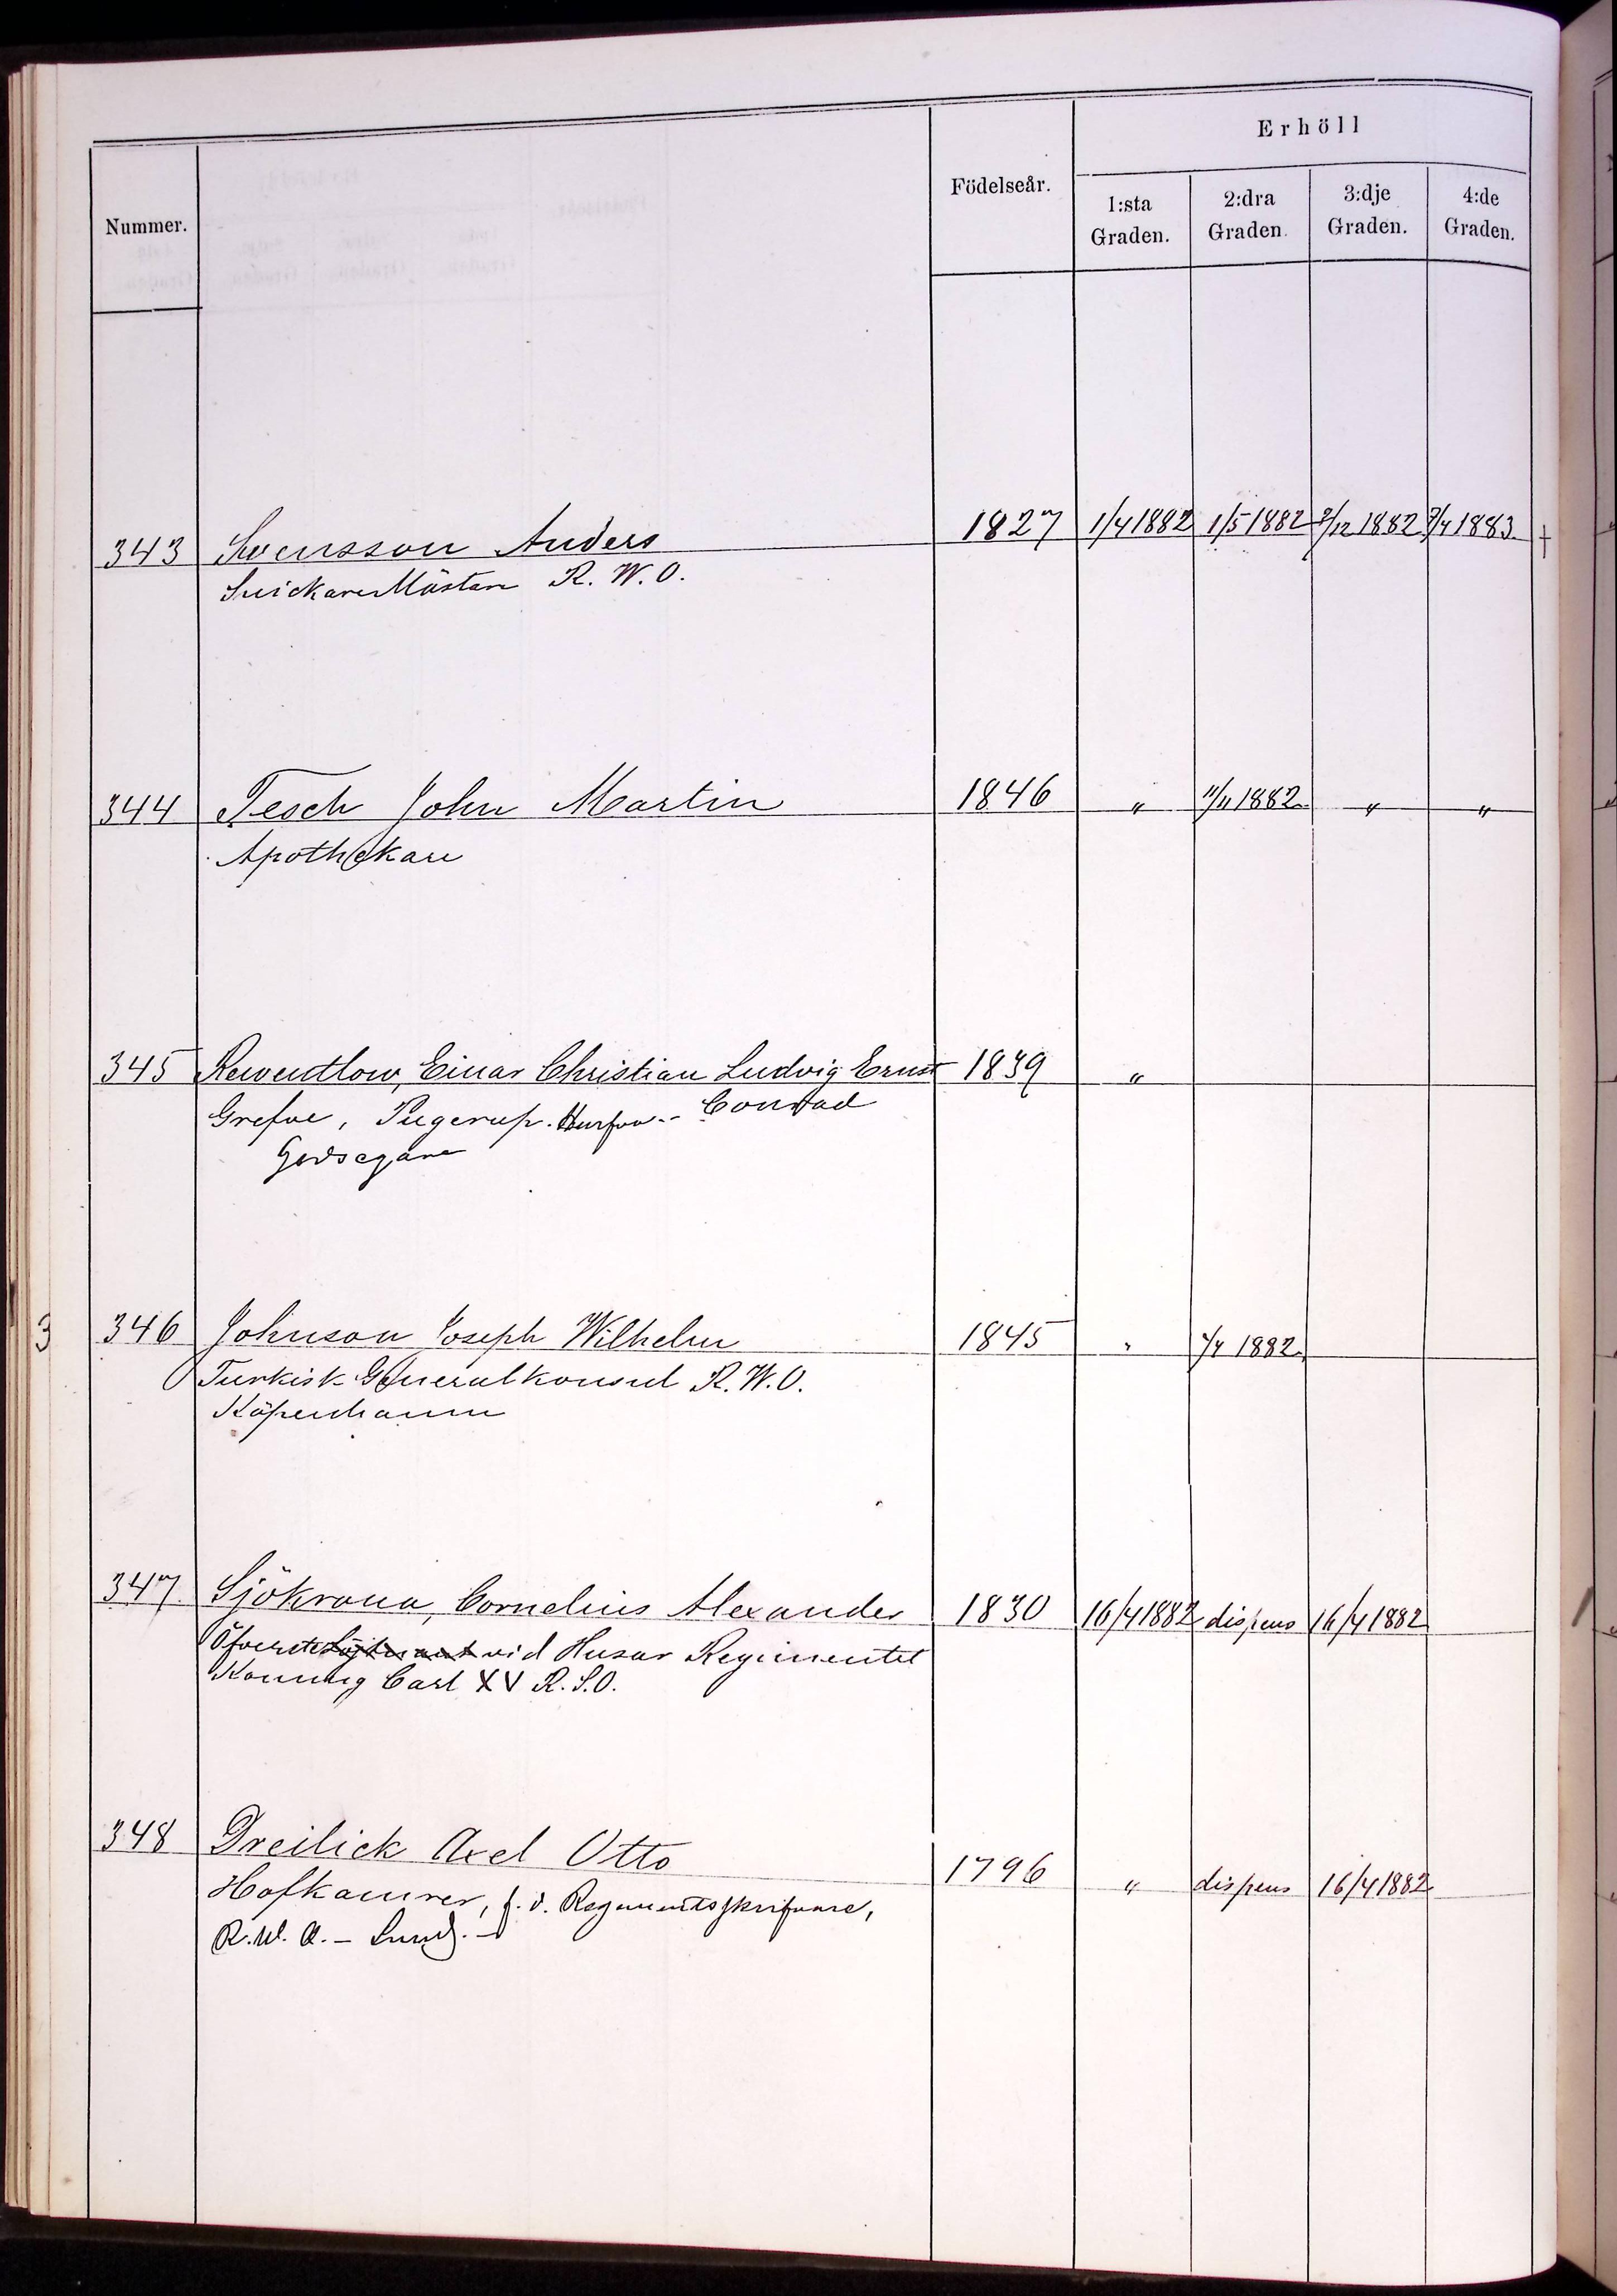 Erhöll
Nummer. Födelseår. 1:sta Graden. 2:dra Graden. 3:dje Graden. 4:de Graden.
343 Svensson Anders 1827 1/4 1882 1/5 1882 2/12 1882 7/4 1883 †
SnickareMästare R. W. O.
344 Tesch John Martin 1846 " 11/11 1882 " "
Apothekare
345 Rewentlow, Einar Christian Ludvig Ernst 1839 "
Grefve, Pugerup. Conrad
Godsegare
3 346 Johnson Joseph Wilhelm 1845 " 4/4 1882
Turkisk Generalkonsul R. W. O.
Köpenhamn
347. Sjökrona, Cornelius Alexander 1830 16/4 1882 dispens 16/4 1882
Öfverste Löjtnant vid Husar Regimentet
Konung Carl XV R. S. O.
348 Dreilick Axel Otto 1796 " dispens 16/4 1882
Hofkamrer, f. d. Regementsskrifvare,
R. W. O. - Lund. -